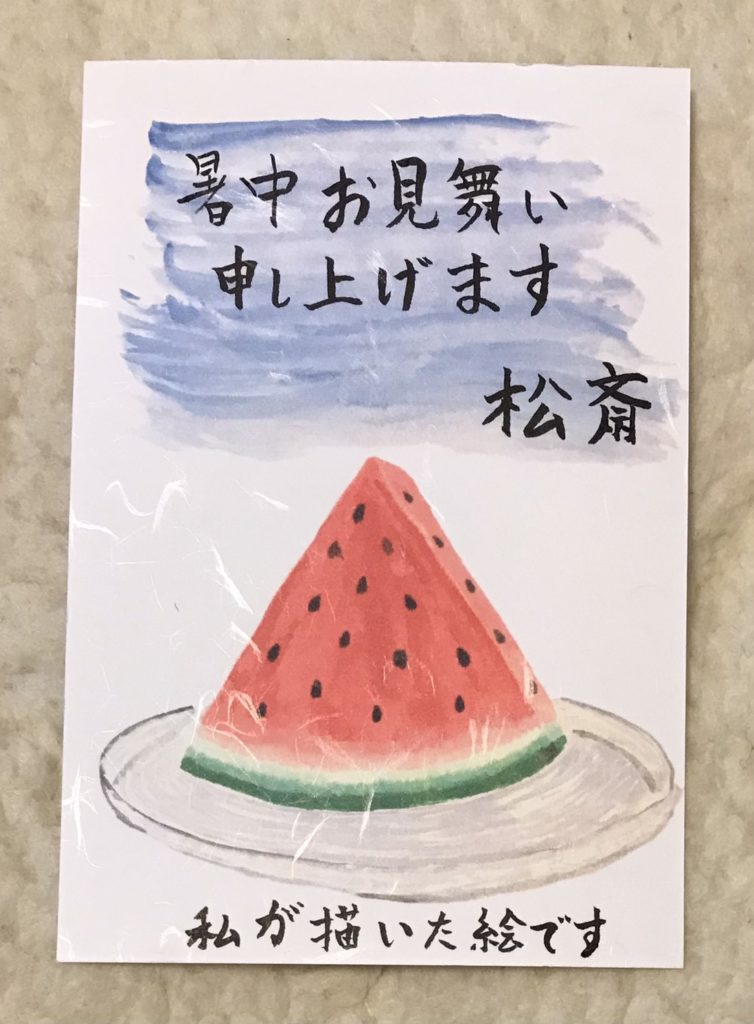 暑中お見舞い
申し上げます
松斎
私が描いた絵です